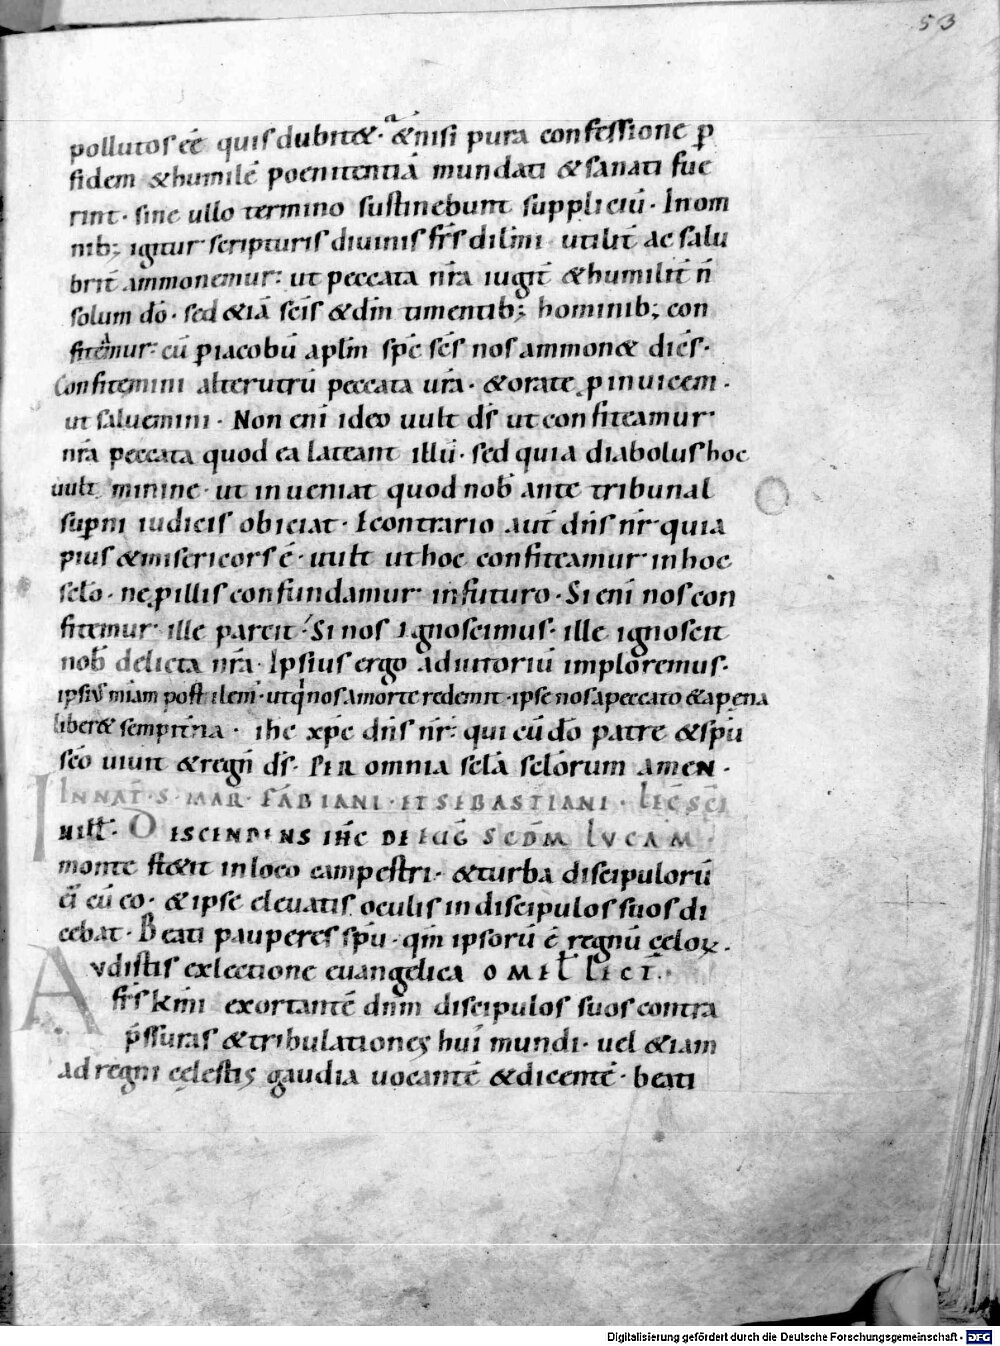 53
pollutos eē quis dubitat&· &nisi pura confessione ꝑ
fidem &humilē poenitentiā mundati &sanati fue
rint· sine ullo termino sustinebunt suppliciū· Inom
nib; igitur scripturis diuinis frs̄ dilm̄i utilit̄ ac salu
brit̄ ammonemur: ut peccata nr̄a iugit̄ &humilit̄ n̄
solum dō· sed &iā sc̄is &dm̄ timentib; hominib; con
fiteamur: cū ꝑ iacobū aplm̄ sp̄c sc̄s nos ammon& dicēs·
Confitemini alterutrū peccata ur̄a· &orate ꝑ inuicem·
ut saluemini· Non eni ideo uult ds̄ ut confiteamur
nr̄a peccata quod ea lateant illū· sed quia diabolus hoc
uult minime· ut inueniat quod nob̄ ante tribunal
suꝑni iudicis obiciat· Econtrario aut̄ dn̄s nr̄ quia
pius &misericors ē· uult ut hoc confiteamur in hoc
sclo̅· ne ꝑ illis confundamur in futuro· Si eni nos con
fitemur ille parcit· Si nos Ignoscimus· ille ignoscit
nob̄ delicta nr̄a· Ipsius ergo adiutoriū imploremus·
ipsiu' miam postulem'· ut qi nos a morte redemit· ipse nos a peccato &a pena
liber& sempitn̄a· ihc xp̄c dn̄s nr̄: qui cū dō patre &sp̄u
sc̄o uiuit &regn̄ ds̄· PER omnia scla̅ sclo̅rum AMEN·
IN NAT̄· S· MAR· FABIANI· ET SEBASTIANI· LEC̄ SC̄I
EUḠ SCDM̄ LVCAM·
DISCENDENS IHC̄ DE
monte st&it in loco campestri· &turba discipulorū
ei' cū eo· &ipse eleuatis oculis in discipulos suos di
cebat· Beati pauperes sp̄u· qm̄ ipsorū ē regnū cęloꝝ·
Avdistis ex lectione euangelica OMIL̄ LECT̄·
frs̄ km̄i exortantē dnm̄ discipulos suos contra
p̄ssuras &tribulationes hui' mundi· uel &iam
ad regni cęlestis gaudia uocantē &dicentē· beati
Digitalisierung gefördert durch die Deutsche Forschungsgemeinschaft - DFG